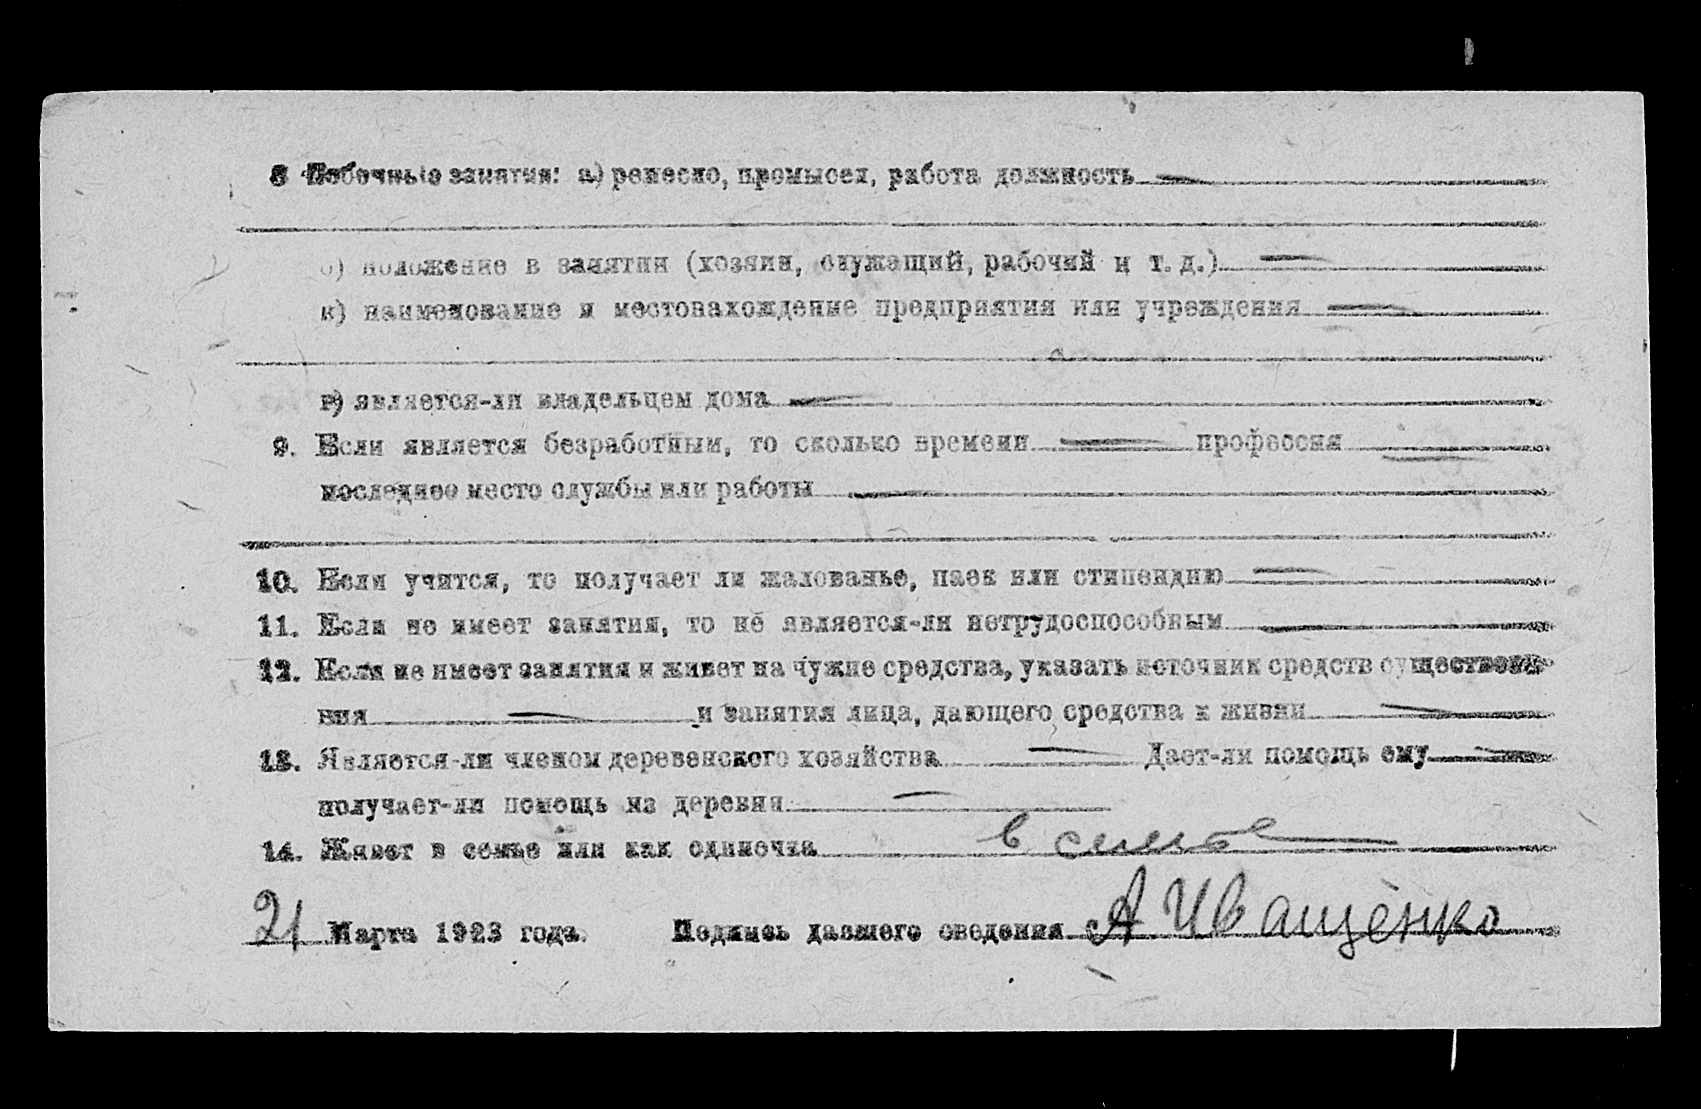 8 Побочные занятия: а) ремесло, промысел, работа должность —
б) положение в занятии (хозяин, служащий, рабочий и т. д.) —
в) наименование и местонахождение предприятия или учреждения —
г) является-ли владельцем дома —
9. Если является безработным, то сколько времени — профессия —
последнее место службы или работы —
10. Если учится, то получает ли жалованье, паек или стипендию —
11. Если не имеет занятия, то не является-ли нетрудоспособным —
12. Если не имеет занятия и живет на чужие средства, указать источник средств существова-
ния — и занятия лица, дающего средства к жизни —
13. Является-ли членом деревенского хозяйства — Дает-ли помощь ему —
получает-ли помощь из деревни —
14. Живет в семье или как одиночка в семье
21 Марта 1923 года. Подпись давшего сведения А Иващенко